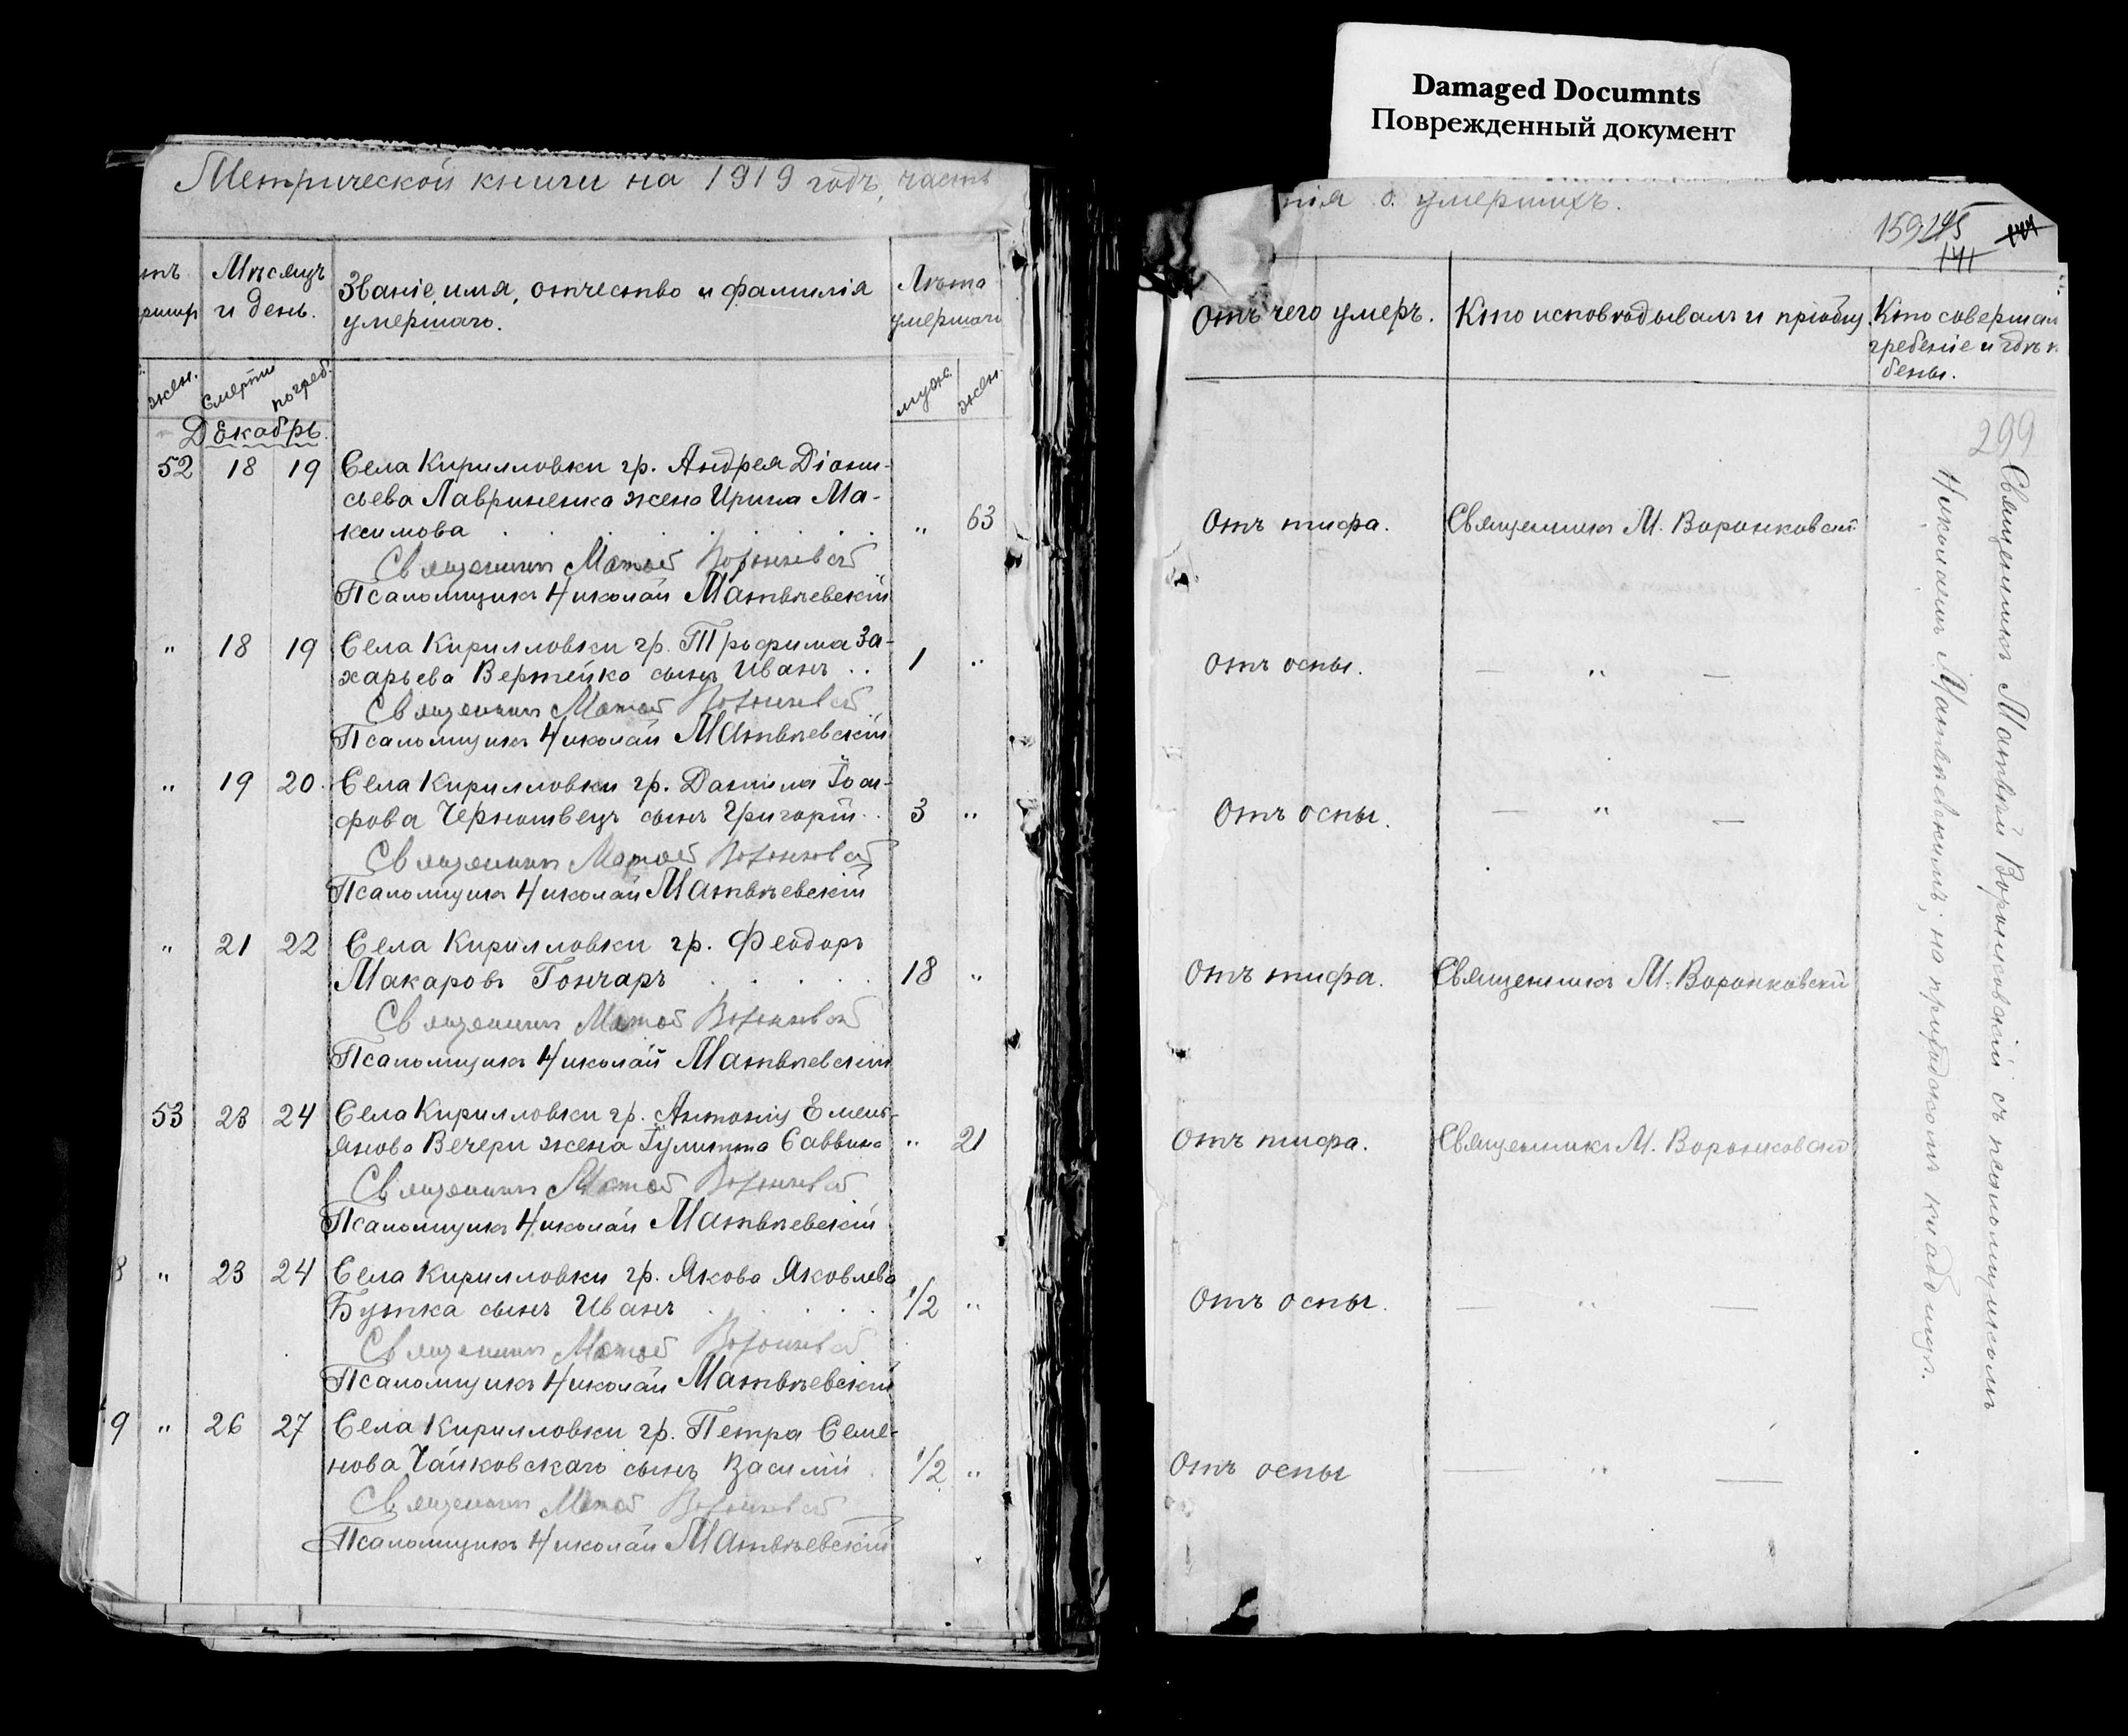 Damaged Documnts
Поврежденный документ
Метрической книги на 1919 годъ, часть
нія о умершихъ.
159 245
141
Мѣсяцъ
и день.
Званіе, имя, отчество и фамилія
умершаго.
Лѣта
умершаго
Отъ чего умеръ.
Кто исповѣдывалъ и пріобщ.
Кто совершал
гребеніе и гдѣ п
бены.
жен.
смерти
погреб.
муж.
жен.
299
Декабрь.
52 18 19 Села Кирилловки гр. Андрея Діони-
сьева Лавриненка жена Ирина Ма-
ксимова . . . . . . . „ 63 Отъ тифа. Священникъ М. Воронковскій
Священникъ Матвей Воронковскій
Псаломщикъ Николай Матвѣевскій
„ 18 19 Села Кирилловки гр. Трофима За-
харьева Вертейка сынъ Иванъ . . 1 „ Отъ оспы. — „ —
Священникъ Матвей Воронковскій
Псаломщикъ Николай Матвѣевскій
„ 19 20. Села Кирилловки гр. Данила Іоси-
фова Чернышвецъ сынъ Григорій . . 3 „ Отъ оспы. — „ —
Священникъ Матвей Воронковскій
Псаломщикъ Николай Матвѣевскій
„ 21 22 Села Кирилловки гр. Феодоръ
Макаровъ Гончаръ . . . . . 18 „ Отъ тифа. Священникъ М. Воронковскій
Священникъ Матвей Воронковскій
Псаломщикъ Николай Матвѣевскій
53 23 24 Села Кирилловки гр. Антонія Емель-
янова Вечери жена Іулитта Саввина „ 21 Отъ тифа. Священникъ М. Воронковскій
Священникъ Матвей Воронковскій
Псаломщикъ Николай Матвѣевскій
8 „ 23 24 Села Кирилловки гр. Якова Яковлева
Бутка сынъ Иванъ . . . . . 1/2 „ Отъ оспы. — „ —
Священникъ Матвей Воронковскій
Псаломщикъ Николай Матвѣевскій
9 „ 26 27 Села Кирилловки гр. Петра Семе-
нова Чайковскаго сынъ Василій . 1/2 „ Отъ оспы — „ —
Священникъ Матвей Воронковскій
Псаломщикъ Николай Матвѣевскій
Священникъ Матвѣй Воронковскій съ псаломщикомъ
Николаемъ Матвѣевскимъ, на приходскомъ кладбищѣ.